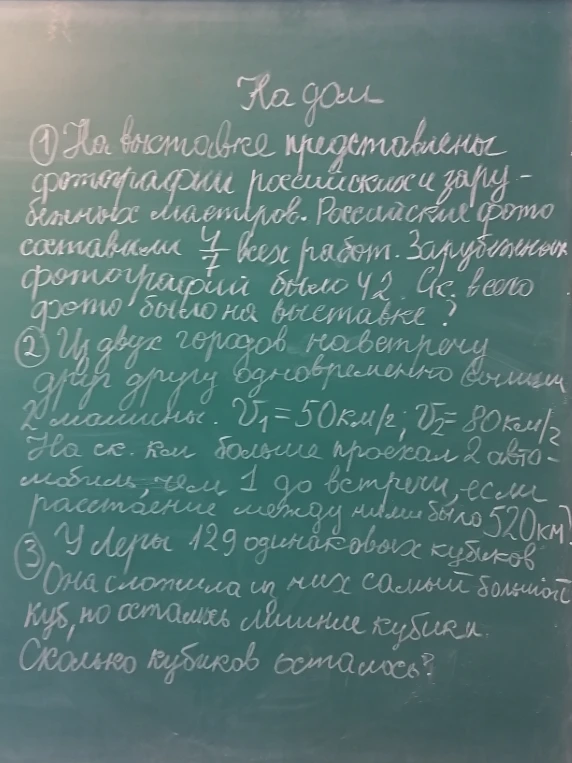 На дом
① На выставке представлены
фотографии российских и зару-
бежных мастеров. Российские фото
составили 4/7 всех работ. Зарубежных
фотографий было 42. Ск. всего
фото было на выставке?
② Из двух городов навстречу
друг другу одновременно вышли
2 машины. V₁ = 50 км/г; V₂ = 80 км/г
На ск. км больше проехал 2 авто-
мобиль, чем 1 до встречи, если
расстояние между ними было 520 км?
③ У Леры 129 одинаковых кубиков
Она сложила из них самый большой
куб, но остались лишние кубики.
Сколько кубиков осталось?